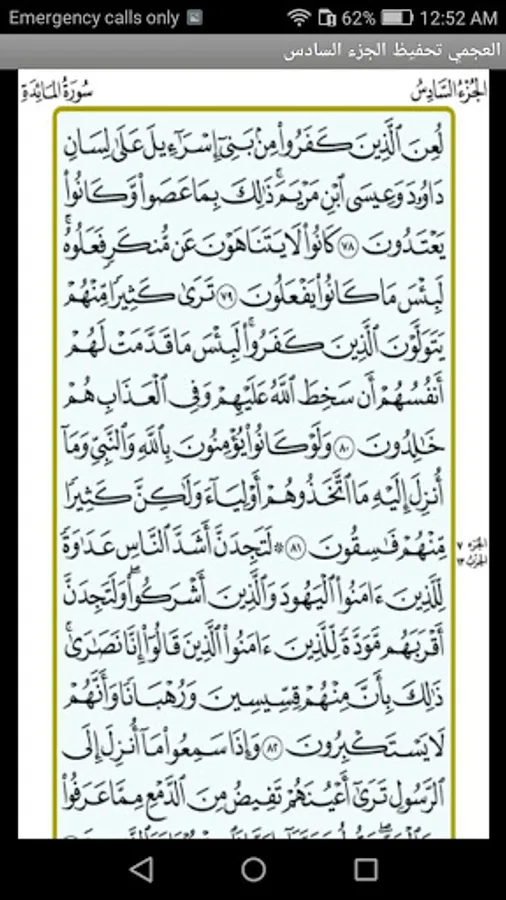 Emergency calls only 62% 12:52 AM
العجمي تحفيظ الجزء السادس
الجُزْءُ السَّادِسُ سُورَةُ المَائِدَةِ
لُعِنَ ٱلَّذِينَ كَفَرُوا۟ مِنۢ بَنِىٓ إِسْرَٰٓءِيلَ عَلَىٰ لِسَانِ
دَاوُۥدَ وَعِيسَى ٱبْنِ مَرْيَمَ ۚ ذَٰلِكَ بِمَا عَصَوا۟ وَّكَانُوا۟
يَعْتَدُونَ ٧٨ كَانُوا۟ لَا يَتَنَاهَوْنَ عَن مُّنكَرٍ فَعَلُوهُ ۚ
لَبِئْسَ مَا كَانُوا۟ يَفْعَلُونَ ٧٩ تَرَىٰ كَثِيرًا مِّنْهُمْ
يَتَوَلَّوْنَ ٱلَّذِينَ كَفَرُوا۟ ۚ لَبِئْسَ مَا قَدَّمَتْ لَهُمْ
أَنفُسُهُمْ أَن سَخِطَ ٱللَّهُ عَلَيْهِمْ وَفِى ٱلْعَذَابِ هُمْ
خَٰلِدُونَ ٨٠ وَلَوْ كَانُوا۟ يُؤْمِنُونَ بِٱللَّهِ وَٱلنَّبِىِّ وَمَآ
أُنزِلَ إِلَيْهِ مَا ٱتَّخَذُوهُمْ أَوْلِيَآءَ وَلَٰكِنَّ كَثِيرًا
مِّنْهُمْ فَٰسِقُونَ ٨١ ۞ لَتَجِدَنَّ أَشَدَّ ٱلنَّاسِ عَدَٰوَةً
الجزء ٧
الحزب ١٣
لِّلَّذِينَ ءَامَنُوا۟ ٱلْيَهُودَ وَٱلَّذِينَ أَشْرَكُوا۟ ۖ وَلَتَجِدَنَّ
أَقْرَبَهُم مَّوَدَّةً لِّلَّذِينَ ءَامَنُوا۟ ٱلَّذِينَ قَالُوٓا۟ إِنَّا نَصَٰرَىٰ ۚ
ذَٰلِكَ بِأَنَّ مِنْهُمْ قِسِّيسِينَ وَرُهْبَانًا وَأَنَّهُمْ
لَا يَسْتَكْبِرُونَ ٨٢ وَإِذَا سَمِعُوا۟ مَآ أُنزِلَ إِلَى
ٱلرَّسُولِ تَرَىٰٓ أَعْيُنَهُمْ تَفِيضُ مِنَ ٱلدَّمْعِ مِمَّا عَرَفُوا۟